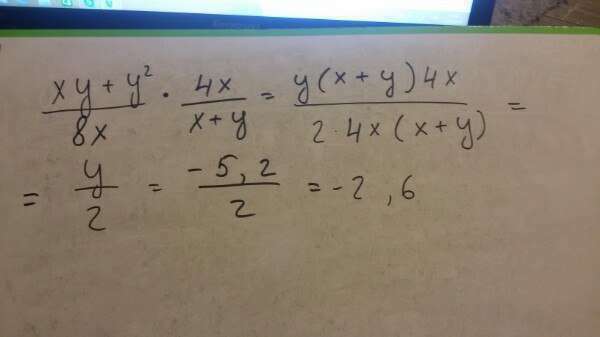 (xy + y²)/(8x) · (4x)/(x + y) = (y(x + y)4x)/(2·4x(x + y)) =
= y/2 = (-5,2)/2 = -2,6